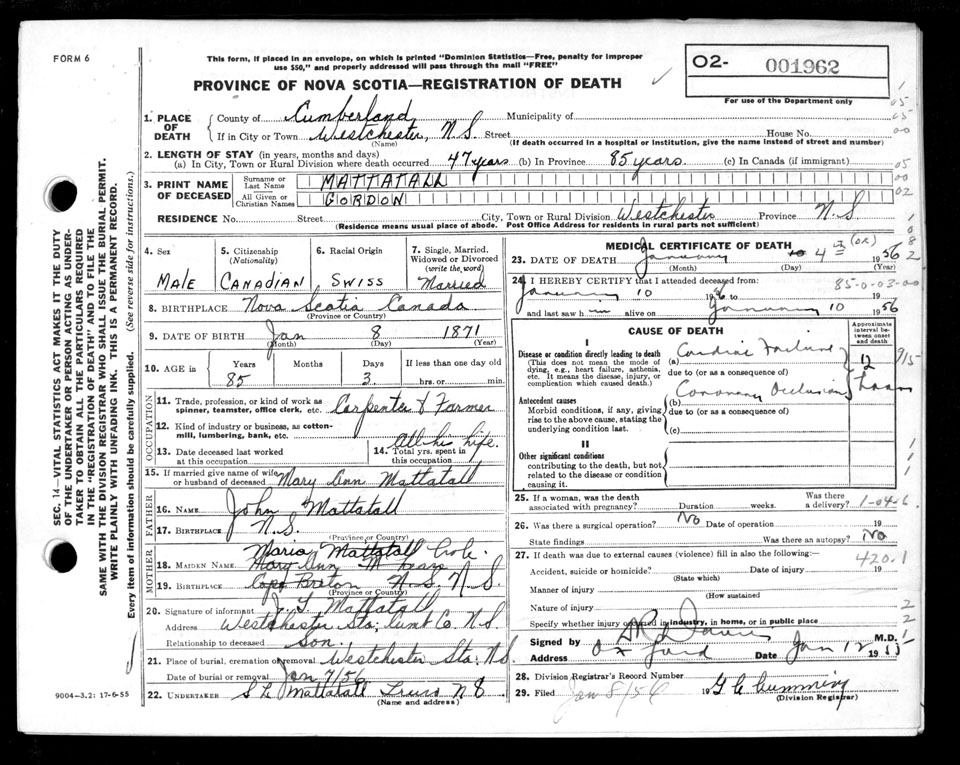 FORM 6
This form, if placed in an envelope, on which is printed "Dominion Statistics—Free, penalty for improper
use $50," and properly addressed will pass through the mail "FREE"
PROVINCE OF NOVA SCOTIA—REGISTRATION OF DEATH
O2- 001962
For use of the Department only
1. PLACE OF DEATH
County of Cumberland Municipality of
If in City or Town Westchester, N.S. Street House No.
(Name) (If death occurred in a hospital or institution, give the name instead of street and number)
2. LENGTH OF STAY (in years, months and days)
(a) In City, Town or Rural Division where death occurred 47 years (b) In Province 85 years. (c) In Canada (if immigrant)
3. PRINT NAME OF DECEASED
Surname or Last Name MATTATALL
All Given or Christian Names GORDON
RESIDENCE No. Street City, Town or Rural Division Westchester Province N.S
(Residence means usual place of abode. Post Office Address for residents in rural parts not sufficient)
4. Sex
Male
5. Citizenship
(Nationality)
Canadian
6. Racial Origin
Swiss
7. Single, Married,
Widowed or Divorced
(write the word)
Married
8. BIRTHPLACE Nova Scotia Canada
(Province or Country)
9. DATE OF BIRTH Jan 8 1871
(Month) (Day) (Year)
10. AGE in
Years Months Days If less than one day old
85 3 hrs. or min.
OCCUPATION
11. Trade, profession, or kind of work as
spinner, teamster, office clerk, etc. Carpenter & Farmer
12. Kind of industry or business, as cotton-
mill, lumbering, bank, etc.
13. Date deceased last worked
at this occupation
14. Total yrs. spent in
this occupation All his life.
15. If married give name of wife
or husband of deceased Mary Ann Mattatall
FATHER
16. NAME John Mattatall
17. BIRTHPLACE N.S.
(Province or Country)
MOTHER
Maria Mattatall Cole
18. MAIDEN NAME Mary Ann
19. BIRTHPLACE Cape Breton N.S. N.S.
(Province or Country)
20. Signature of informant J. G. Mattatall
Address Westchester Sta, Cumb Co. N.S.
Relationship to deceased son.
21. Place of burial, cremation or removal Westchester Sta. N.S
Date of burial or removal Jan 7/56
22. UNDERTAKER S L Mattatall Truro N S
(Name and address)
9004—3.2: 17-6-55
MEDICAL CERTIFICATE OF DEATH
23. DATE OF DEATH January 4 (OK) 1956
(Month) (Day) (Year)
24. I HEREBY CERTIFY that I attended deceased from 85-0-03-00
January 10 1956 to
and last saw h alive on January 10 1956
CAUSE OF DEATH
Approximate
interval be-
tween onset
and death
I
Disease or condition directly leading to death
(This does not mean the mode of
dying, e.g., heart failure, asthenia,
etc. It means the disease, injury, or
complication which caused death.)
(a) Cardiac Failure
due to (or as a consequence of)
12 hours
915
Antecedent causes
Morbid conditions, if any, giving
rise to the above cause, stating the
underlying condition last.
(b) Coronary Occlusion
due to (or as a consequence of)
(c)
II
Other significant conditions
contributing to the death, but not
related to the disease or condition
causing it.
25. If a woman, was the death
associated with pregnancy? Duration weeks. Was there
a delivery? 1-04-6
26. Was there a surgical operation? No Date of operation 19
State findings Was there an autopsy? No
27. If death was due to external causes (violence) fill in also the following:— 420.1
Accident, suicide or homicide? Date of injury 19
(State which)
Manner of injury
(How sustained
Nature of injury
Specify whether injury occurred in industry, in home, or in public place
Signed by M.D.
Address Oxford Date Jan 12 19
28. Division Registrar's Record Number
29. Filed Jan 8/56 19 G C Cumming
(Division Registrar)
SEC. 14—VITAL STATISTICS ACT MAKES IT THE DUTY
OF THE UNDERTAKER OR PERSON ACTING AS UNDER-
TAKER TO OBTAIN ALL THE PARTICULARS REQUIRED
IN THE "REGISTRATION OF DEATH" AND TO FILE THE
SAME WITH THE DIVISION REGISTRAR WHO SHALL ISSUE THE BURIAL PERMIT.
WRITE PLAINLY WITH UNFADING INK. THIS IS A PERMANENT RECORD.
Every item of information should be carefully supplied. (See reverse side for instructions.)